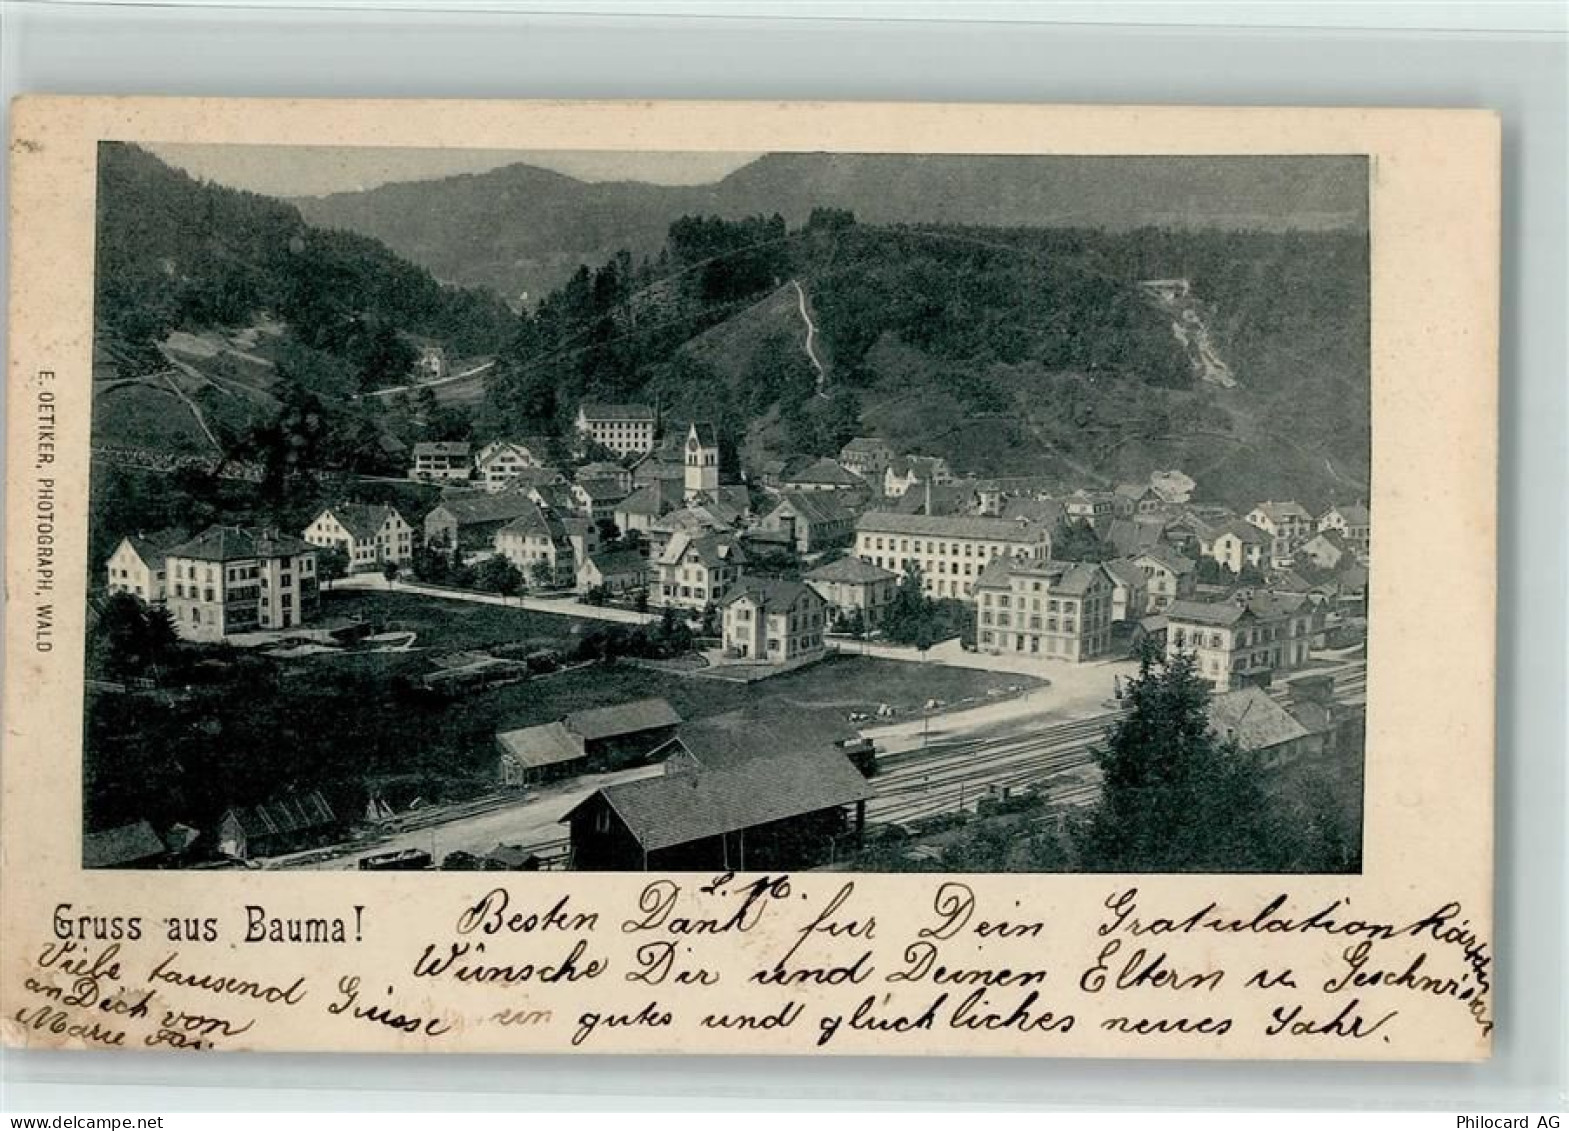 E. OETIKER, PHOTOGRAPH, WALD
Gruss aus Bauma!
L. M.
Besten Dank fur Dein Gratulationkärtchen
Wünsche Dir und Deinen Eltern u Geschwister
ein gutes und glückliches neues Jahr.
Viele tausend Grüsse
an Dich von
Marie
Philocard AG